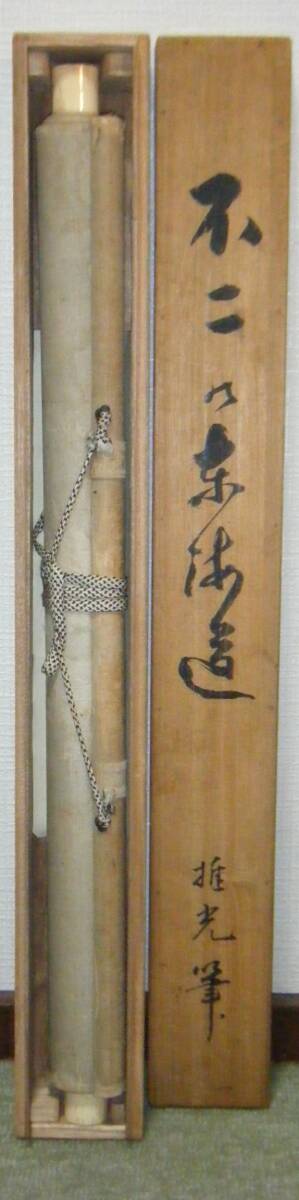 不二の東海道
推光筆